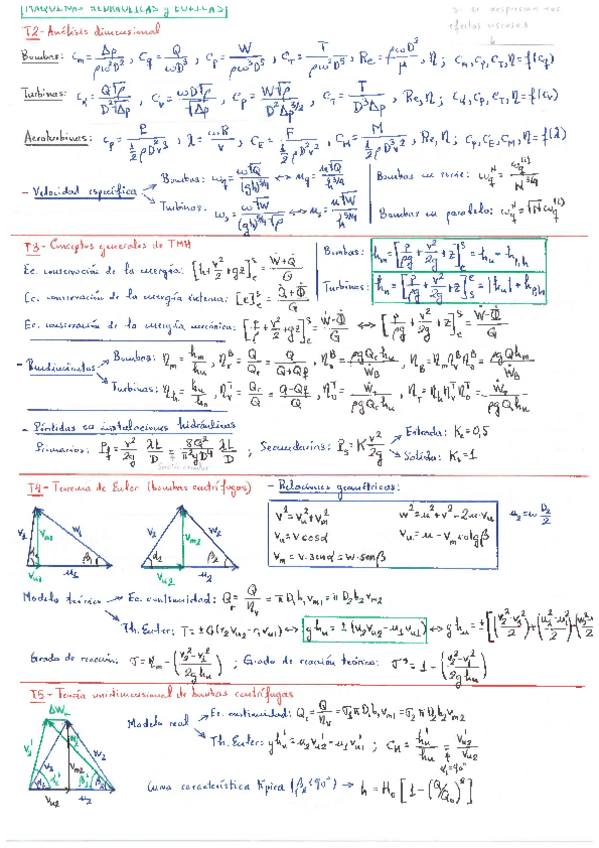 [MAQUINAS HIDRÁULICAS y EÓLICAS]
si se desprecian los efectos viscosos
T2 - Análisis dimensional
Bombas: C_m = Δp/(ρω²D²), C_q = Q/(ωD³), C_p = W/(ρω³D⁵), C_T = T/(ρω²D⁵), Re = ρωD²/μ, η; C_m, C_p, C_T, η = f(C_q)
Turbinas: C_q = Q√ρ/(D²√Δp), C_v = ωD√ρ/√Δp, C_p = W√ρ/(D²Δp^3/2), C_T = T/(D³Δp), Re, η; C_q, C_p, C_T, η = f(C_v)
Aeroturbinas: C_p = P/(½ρD²v³), λ = ωR/v, C_E = F/(½ρD²v²), C_M = M/(½ρD³v²), Re, η; C_p, C_E, C_M, η = f(λ)
- Velocidad específica
Bombas: ω_q = ω√Q/(gh)^3/4 ↔ n_q = n√Q/h^3/4
Turbinas: ω_s = ω√W/((gh)^5/4 √ρ) ↔ n_s = n√W/h^5/4
Bombas en serie:
Bombas en paralelo:
T3 - Conceptos generales de TMH
Ec. conservación de la energía: [h + v²/2 + gz]ₑˢ = (W + Q)/G
Ec. conservación de la energía interna: [e]ₑˢ = (Q + Φ)/G
Ec. conservación de la energía mecánica: [p/ρ + v²/2 + gz]ₑˢ = (W - Φ)/G ↔ [p/ρg + v²/2g + z]ₑˢ = (W - Φ)/Gg
Bombas: h_m = [p/ρg + v²/2g + z]ₑˢ = h_u - h_p,h
Turbinas: h_n = [p/ρg + v²/2g + z]ₛᵉ = |h_u| + h_p,h
- Rendimientos
Bombas: η_m = h_m/h_u, η_v^B = Q/Q_r = Q/(Q + Q_f), η_o^B = ρgQ_r h_u/W_B, η_B = η_m η_v^B η_o^B = ρgQh_m/W_B
Turbinas: η_h = h_u/h_n, η_v^T = Q_r/Q = (Q - Q_f)/Q, η_o^T = W_T/(ρgQ_r h_u), η_T = η_h η_v^T η_o^T = W_T/(ρgQh_n)
- Pérdidas en instalaciones hidráulicas
Primarias: P_f = v²/2g λL/D = 8Q²/(π²gD⁴) λL/D; Secundarias: P_s = K v²/2g
Sección circular
Entrada: Kₑ = 0,5
Salida: Kₛ = 1
T4 - Teorema de Euler (bombas centrífugas)
- Relaciones geométricas:
v² = v_u² + v_m²
w² = u² + v² - 2u·v_u
u_2 = ω D_2/2
v_u = v cosα
v_u = u - v_m cotgβ
v_m = v·senα = w·senβ
v_1 v_m1 w_1 α_1 β_1 v_u1 u_1
v_2 v_m2 w_2 α_2 β_2 v_u2 u_2
Modelo teórico
Ec. continuidad: Q_r = Q/η_v = πD_1b_1v_m1 = πD_2b_2v_m2
Th. Euler: T = ±G(r_2v_u2 - r_1v_u1) ↔ gh_u = ±(u_2v_u2 - u_1v_u1) ↔ gh_u = ±[(v_2² - v_1²)/2 + (u_2² - u_1²)/2 +
Grado de reacción: σ = η_m - (v_2² - v_1²)/(2gh_u); Grado de reacción teórico: σ° = 1 - (v_2² - v_1²)/(2gh_u)
T5 - Teoría unidimensional de bombas centrífugas
Modelo real
Ec. continuidad: Q_r = Q/η_v = σ_1πD_1b_1v_m1 = σ_2πD_2b_2v_m2
Th. Euler: gh_u' = u_2v_u2' - u_1v_u1'; C_H = h_u'/h_u = v_u2'/v_u2
α_1 = 90°
Curva característica típica (β_2 < 90°) → h = H_0[1 - (Q/Q_0)²]